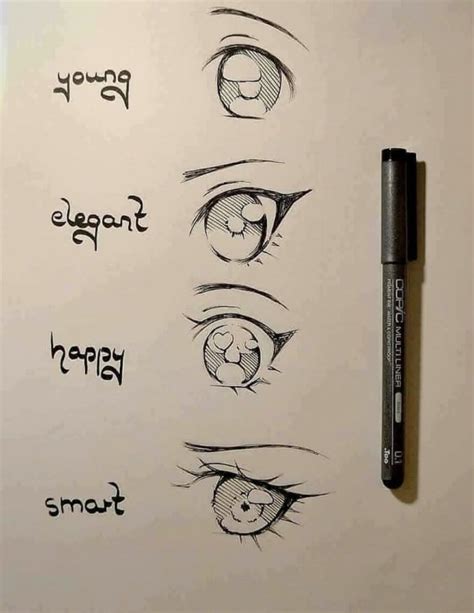 young
elegant
happy
smart
COPIC MULTILINER
0.1
.Too